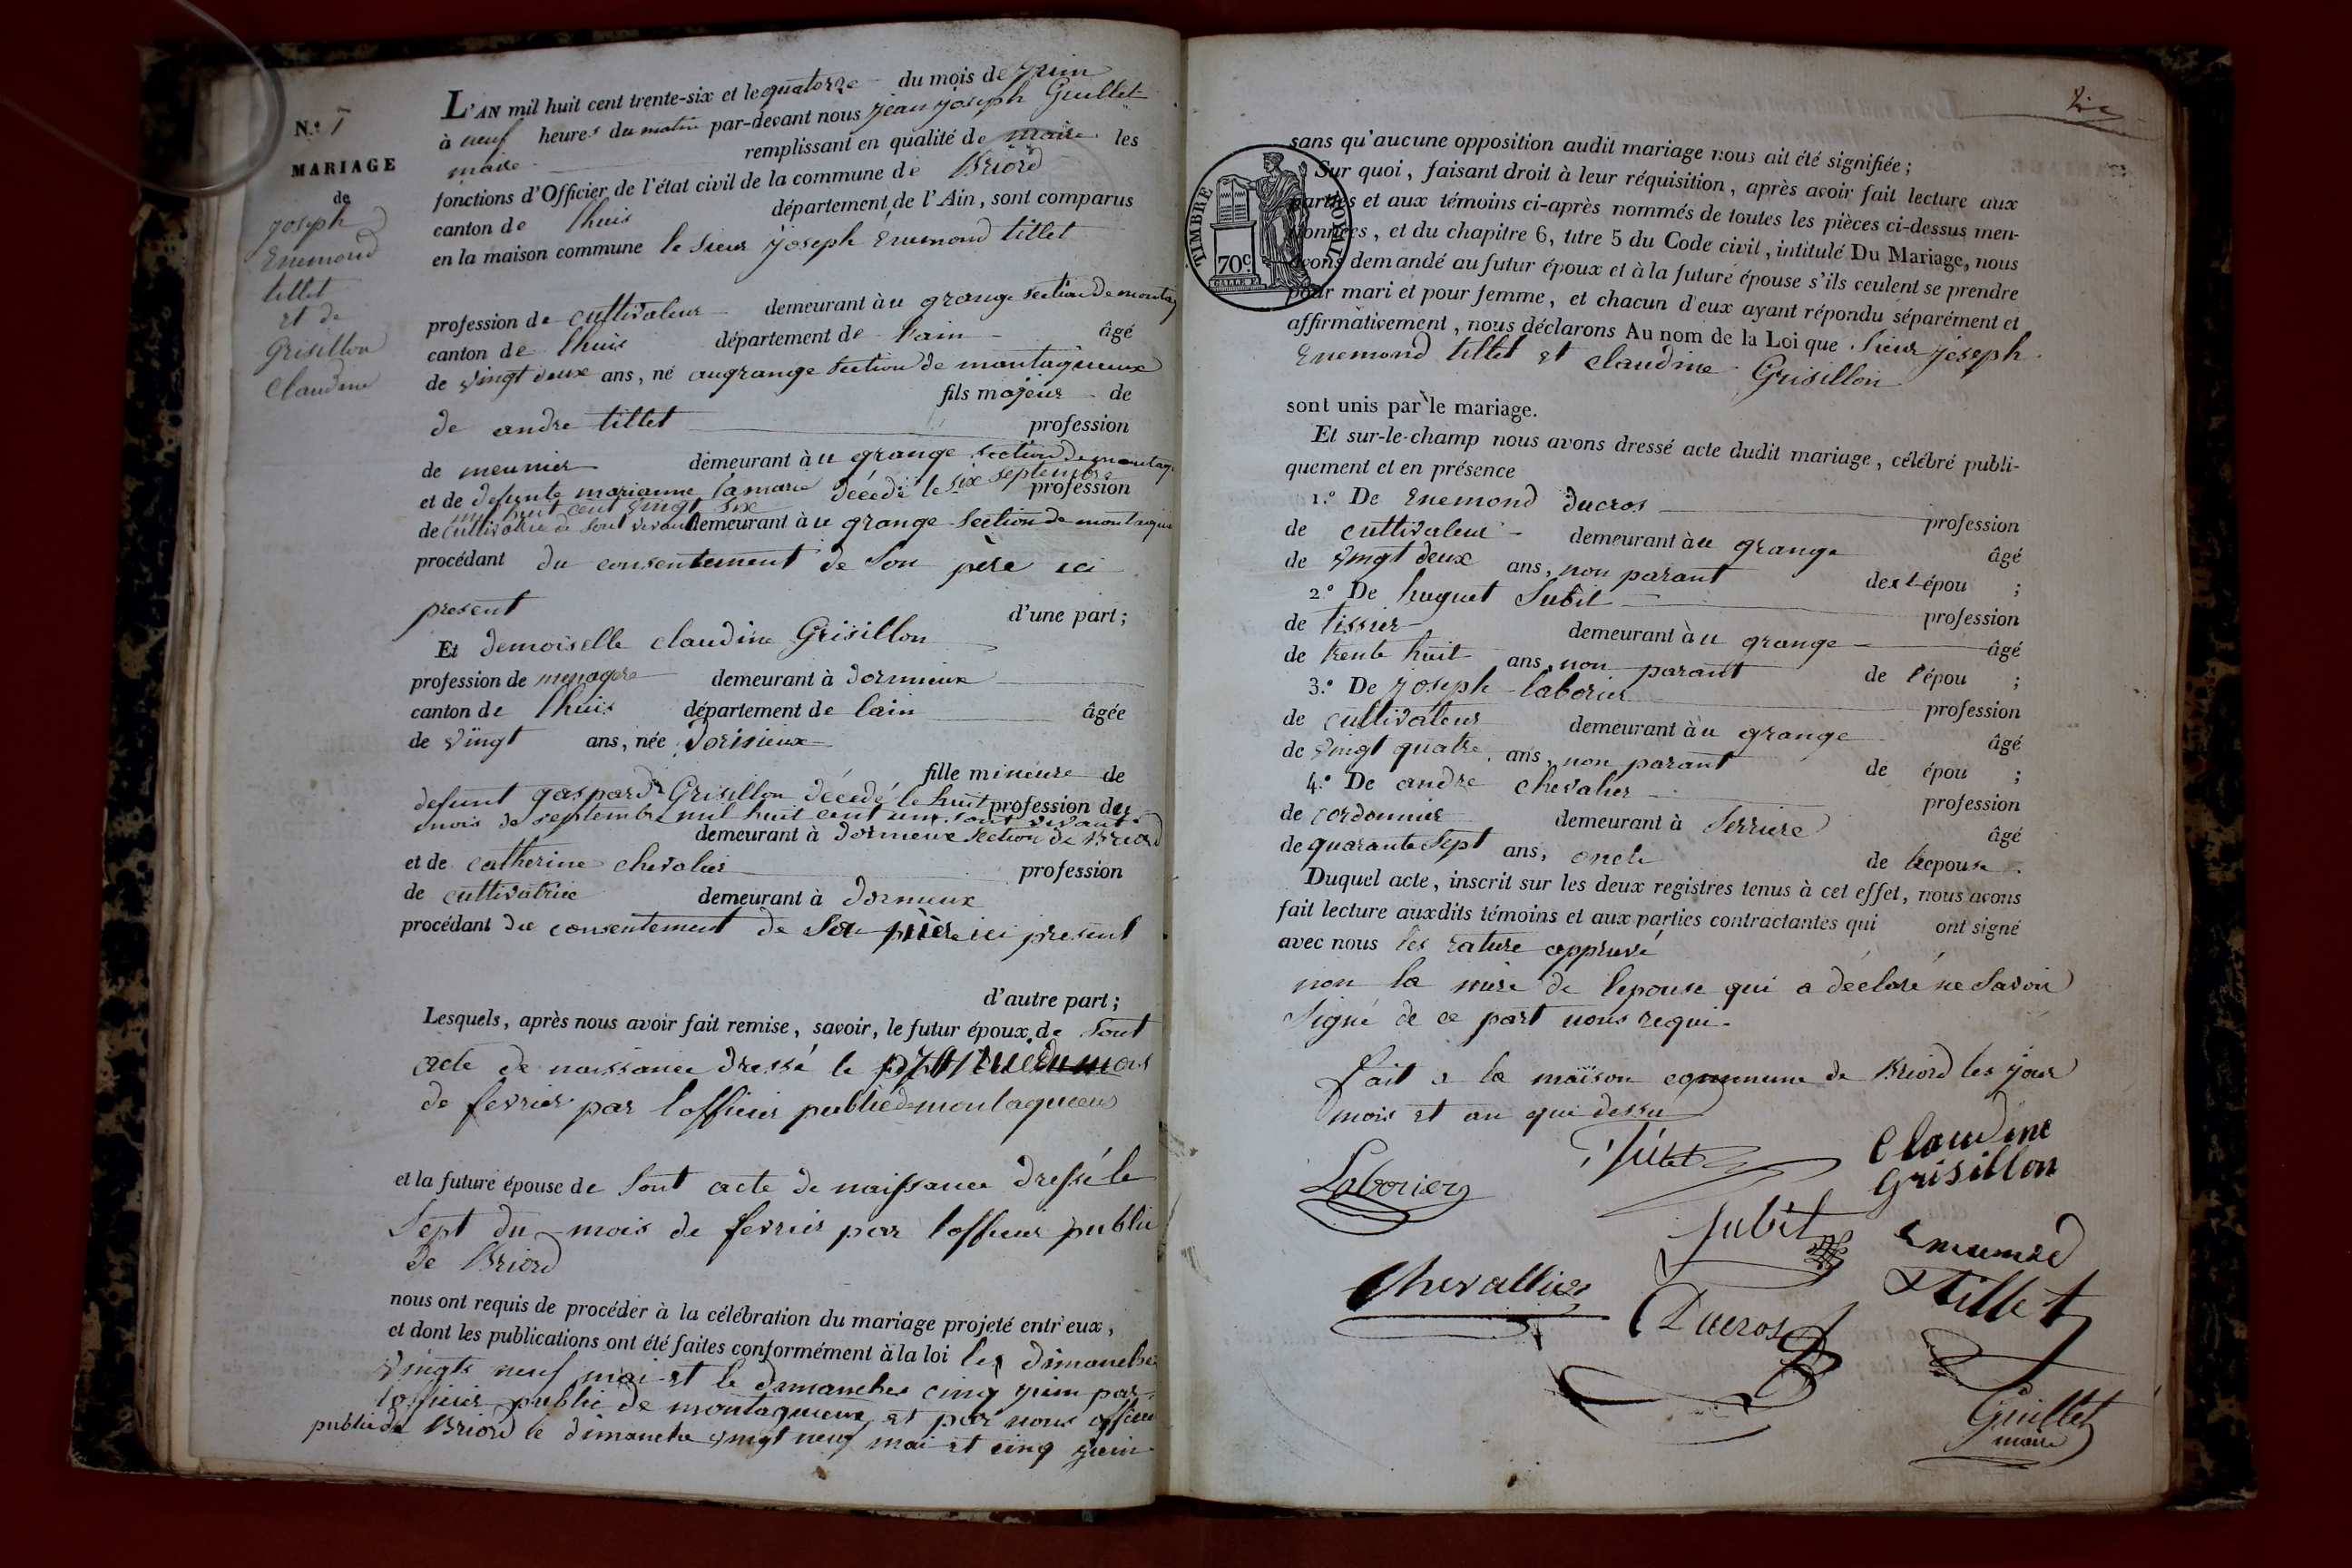 N.º 7
MARIAGE
de
joseph
Enemond
tillet
et de
Grisillon
Claudine
L'AN mil huit cent trente-six et le quatorze du mois de juin
à neuf heures du matin par-devant nous jean joseph Guillet
maire remplissant en qualité de maire les
fonctions d'Officier de l'état civil de la commune de Briord
canton de lhuis département de l'Ain, sont comparus
en la maison commune le sieur joseph Enemond tillet
profession de cultivateur demeurant àu grange section de montag
canton de lhuis département de lain âgé
de vingt deux ans, né augrange section de montagneux
fils majeur de
de andre tillet profession
de meunier demeurant àu grange section de montag
et de defunte marianne lamarie décédé le six septembre profession
mil huit cent vingt six
de cultivatrice de sont vivant demeurant àu grange section de montagn
procédant du consentement de son père ici
present d'une part;
Et demoiselle claudine Grisillon
profession de menagere demeurant à dormieux
canton de lhuis département de lain âgée
de vingt ans, née dorisieux
fille mineure de
defunt gaspard Grisillon décédé le huit profession de
mois de septembre mil huit cent sont vivant
demeurant à dormeux section de Briord
et de catherine chevalier profession
de cultivatrice demeurant à dormeux
procédant du consentement de ici present
d'autre part;
Lesquels, après nous avoir fait remise, savoir, le futur époux de sont
acte de naissance dressé le du mois
de fevrier par lofficier public de montagneux
et la future épouse de sont acte de naissance dressé le
sept du mois de fevrier par lofficier public
de Briord
nous ont requis de procéder à la célébration du mariage projeté entr'eux,
et dont les publications ont été faites conformément à la loi les dimanche
vingts neuf mai et le dimanches cinq juin par
lofficier public de montagneux et par nous officier
public de Briord le dimanche vingt neuf mai et cinq juin
sans qu'aucune opposition audit mariage nous ait été signifiée;
Sur quoi, faisant droit à leur réquisition, après avoir fait lecture aux
parties et aux témoins ci-après nommés de toutes les pièces ci-dessus men-
tionnées, et du chapitre 6, titre 5 du Code civil, intitulé Du Mariage, nous
avons demandé au futur époux et à la future épouse s'ils veulent se prendre
pour mari et pour femme, et chacun d'eux ayant répondu séparément et
affirmativement, nous déclarons Au nom de la Loi que sieur joseph
Enemond tillet et claudine Grisillon
TIMBRE ROYAL
70c
sont unis par le mariage.
Et sur-le-champ nous avons dressé acte dudit mariage, célébré publi-
quement et en présence
1.º De Enemond ducros profession
de cultivateur demeurant àu grange âgé
de vingt deux ans, non parant de lépou ;
2.º De huguet Subit profession
de tissier demeurant àu grange âgé
de trente huit ans, non parant de l'épou ;
3.º De joseph laborier profession
de cultivateur demeurant àu grange âgé
de vingt quatre ans, non parant de épou ;
4.º De andre chevalier profession
de cordonnier demeurant à Serriere âgé
de quarante sept ans, oncle de lepouse.
Duquel acte, inscrit sur les deux registres tenus à cet effet, nous avons
fait lecture auxdits témoins et aux parties contractantes qui ont signé
avec nous les rature appruvé
non la mere de lepouse qui a déclaré ne savoir
signé de ce part nous requi.
fait a la maison commune de Briord les jour
mois et an que dessu
Tillet
Claudine
Grisillon
Laborier
Subit
Enemond
Tillet
Chevallier
Ducros
Guillet
maire